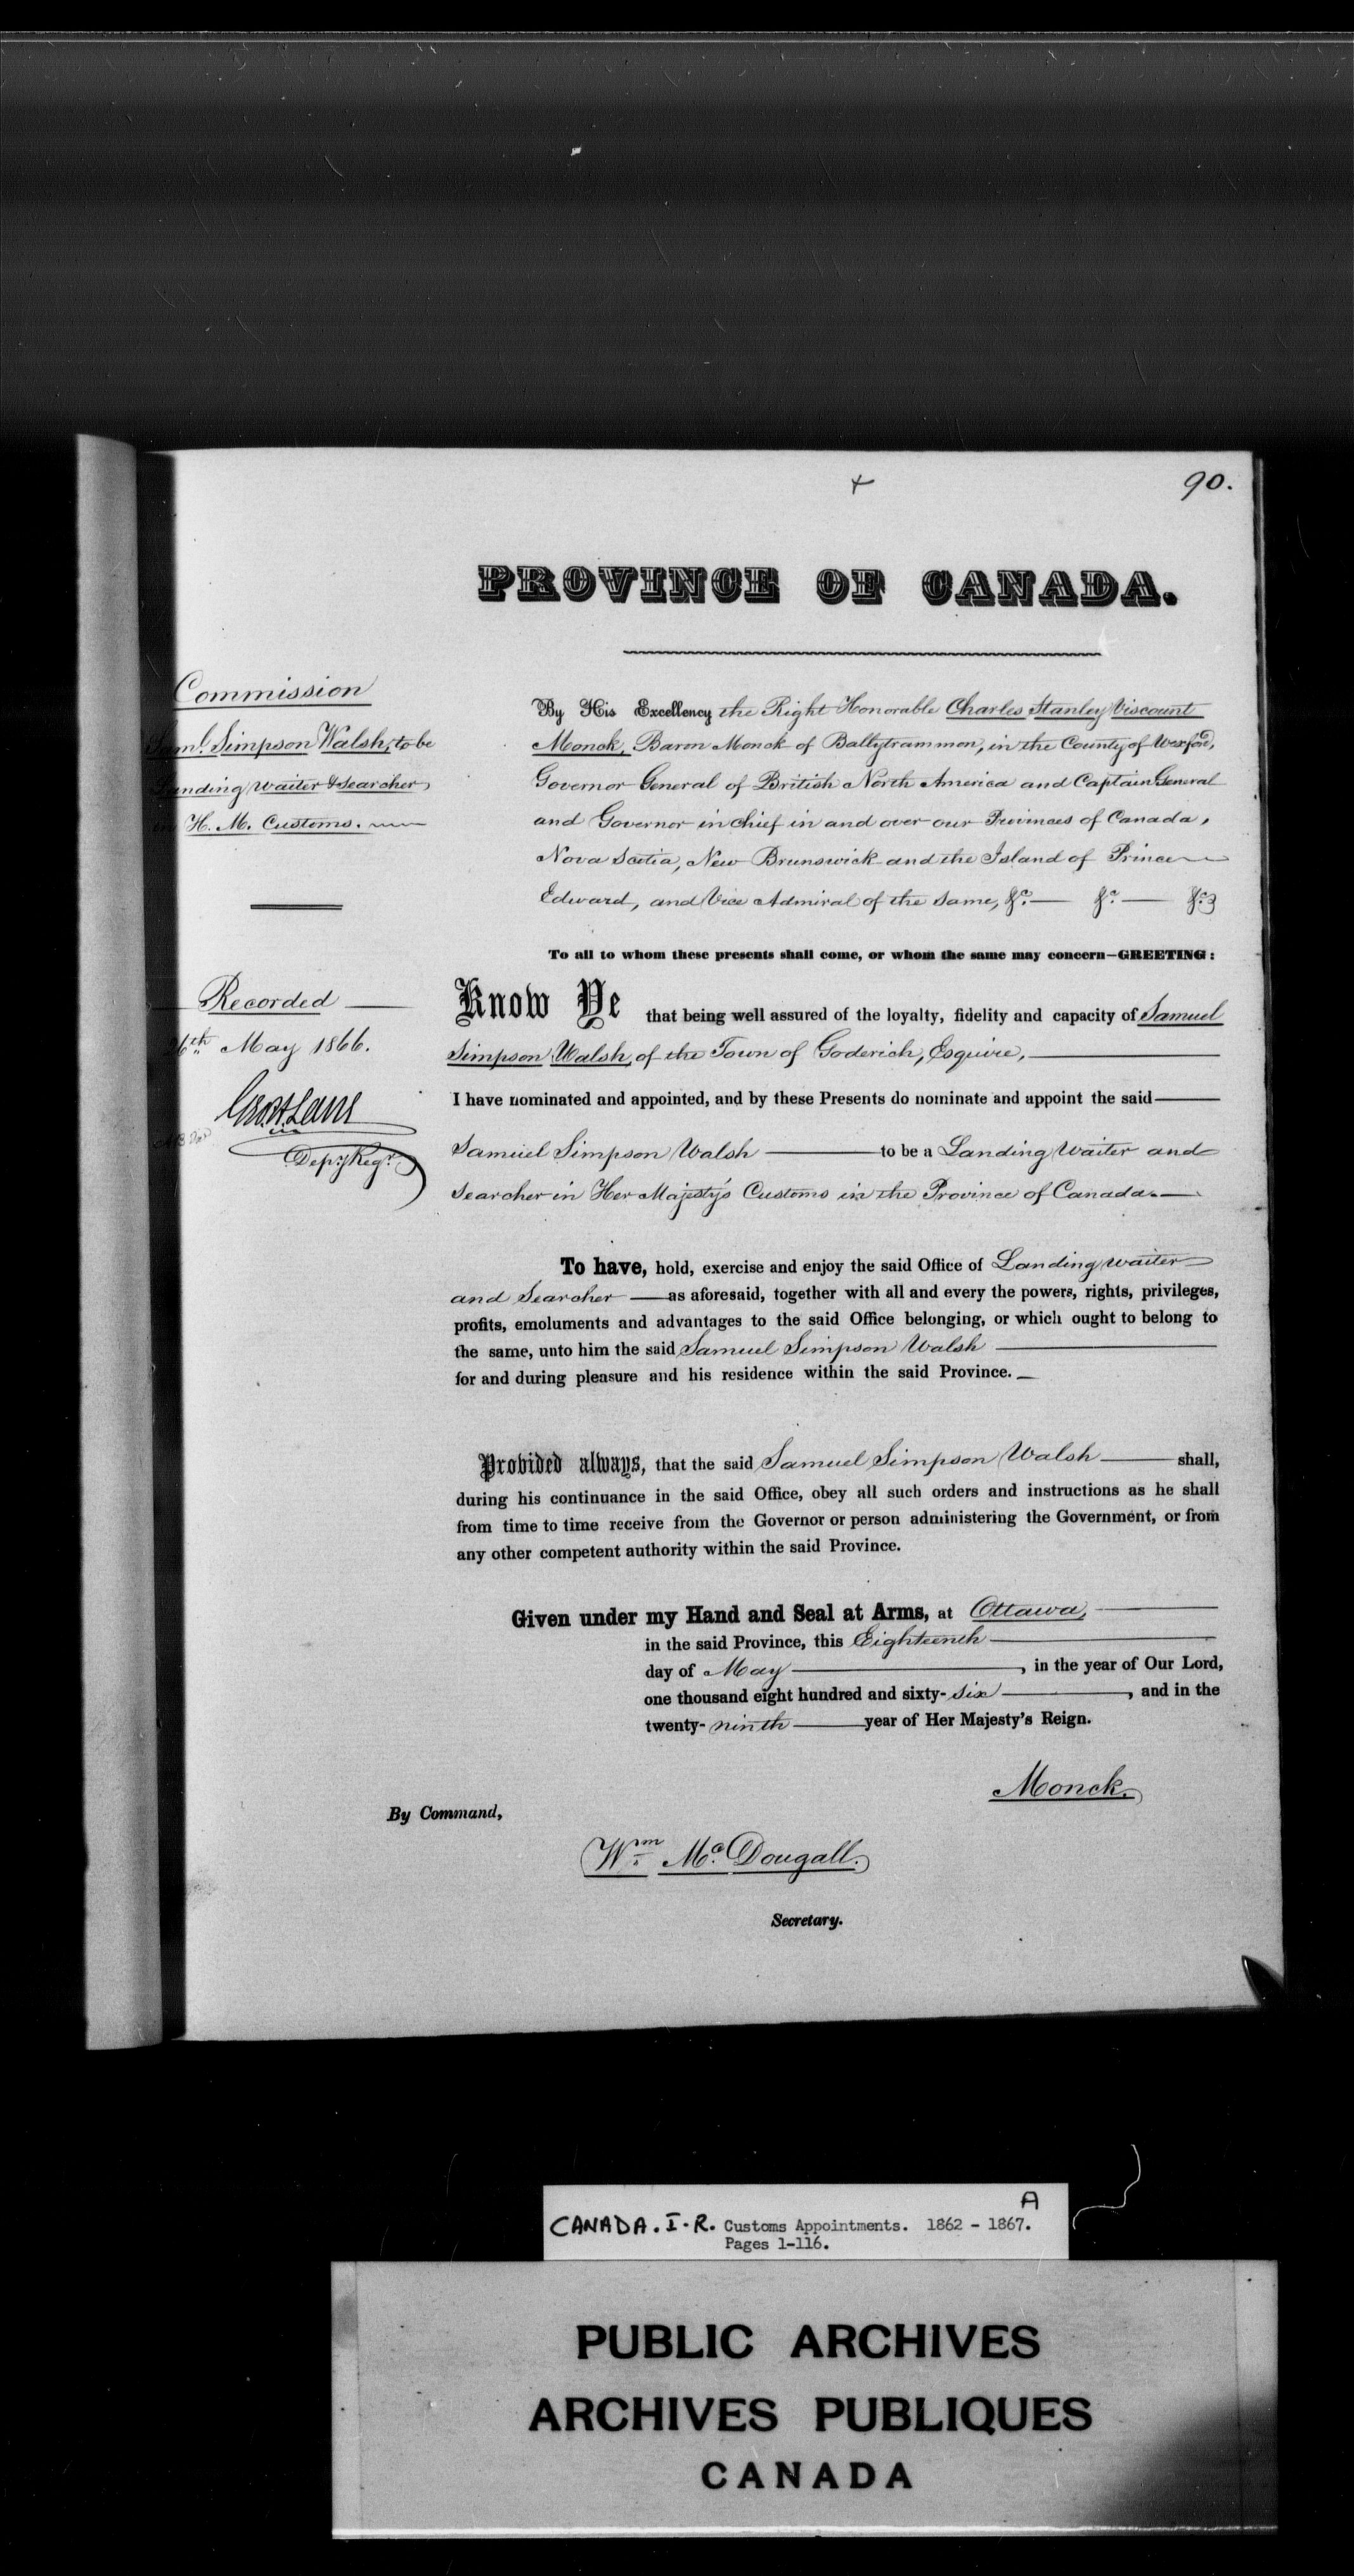 + 90.
PROVINCE OF CANADA.
Commission
Saml. Simpson Walsh, to be
Landing Waiter & Searcher
in H. M. Customs.
Recorded
26th May 1866.
Depy. Regr.
By His Excellency the Right Honorable Charles Stanley Viscount
Monck, Baron Monck of Ballytrammon, in the County of Wexford,
Governor General of British North America and Captain General
and Governor in chief in and over our Provinces of Canada,
Nova Scotia, New Brunswick and the Island of Prince
Edward, and Vice Admiral of the same, &c. — &c. — &c.
To all to whom these presents shall come, or whom the same may concern—GREETING:
Know Ye that being well assured of the loyalty, fidelity and capacity of Samuel
Simpson Walsh, of the Town of Goderich, Esquire, —
I have nominated and appointed, and by these Presents do nominate and appoint the said—
Samuel Simpson Walsh — to be a Landing Waiter and
Searcher in Her Majesty's Customs in the Province of Canada. —
To have, hold, exercise and enjoy the said Office of Landing waiter
and Searcher — as aforesaid, together with all and every the powers, rights, privileges,
profits, emoluments and advantages to the said Office belonging, or which ought to belong to
the same, unto him the said Samuel Simpson Walsh —
for and during pleasure and his residence within the said Province. —
Provided always, that the said Samuel Simpson Walsh — shall,
during his continuance in the said Office, obey all such orders and instructions as he shall
from time to time receive from the Governor or person administering the Government, or from
any other competent authority within the said Province.
Given under my Hand and Seal at Arms, at Ottawa, —
in the said Province, this Eighteenth —
day of May —, in the year of Our Lord,
one thousand eight hundred and sixty-six —, and in the
twenty-ninth — year of Her Majesty's Reign.
Monck.
By Command,
Wm. Mc.Dougall.
Secretary.
A
CANADA. I-R. Customs Appointments. 1862 - 1867.
Pages 1-116.
PUBLIC ARCHIVES
ARCHIVES PUBLIQUES
CANADA